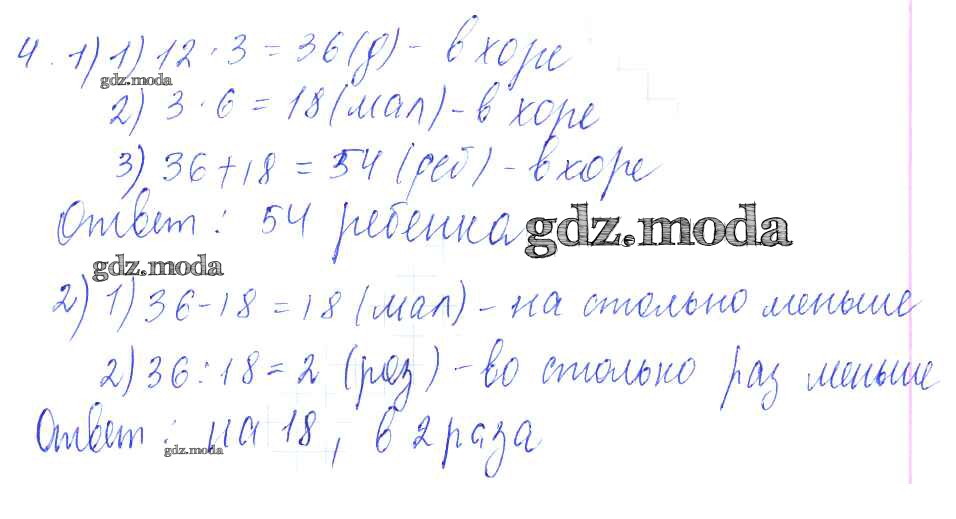 4. 1) 1) 12 · 3 = 36 (д) - в хоре
gdz.moda
2) 3 · 6 = 18 (мал) - в хоре
3) 36 + 18 = 54 (реб) - в хоре
Ответ: 54 ребенка
gdz.moda
gdz.moda
2) 1) 36 - 18 = 18 (мал) - на столько меньше
2) 36 : 18 = 2 (раз) - во столько раз меньше
Ответ: на 18, в 2 раза
gdz.moda